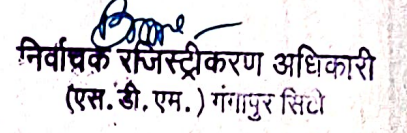 निर्वाचक रजिस्ट्रीकरण अधिकारी
(एस. डी. एम.) गंगापुर सिटी